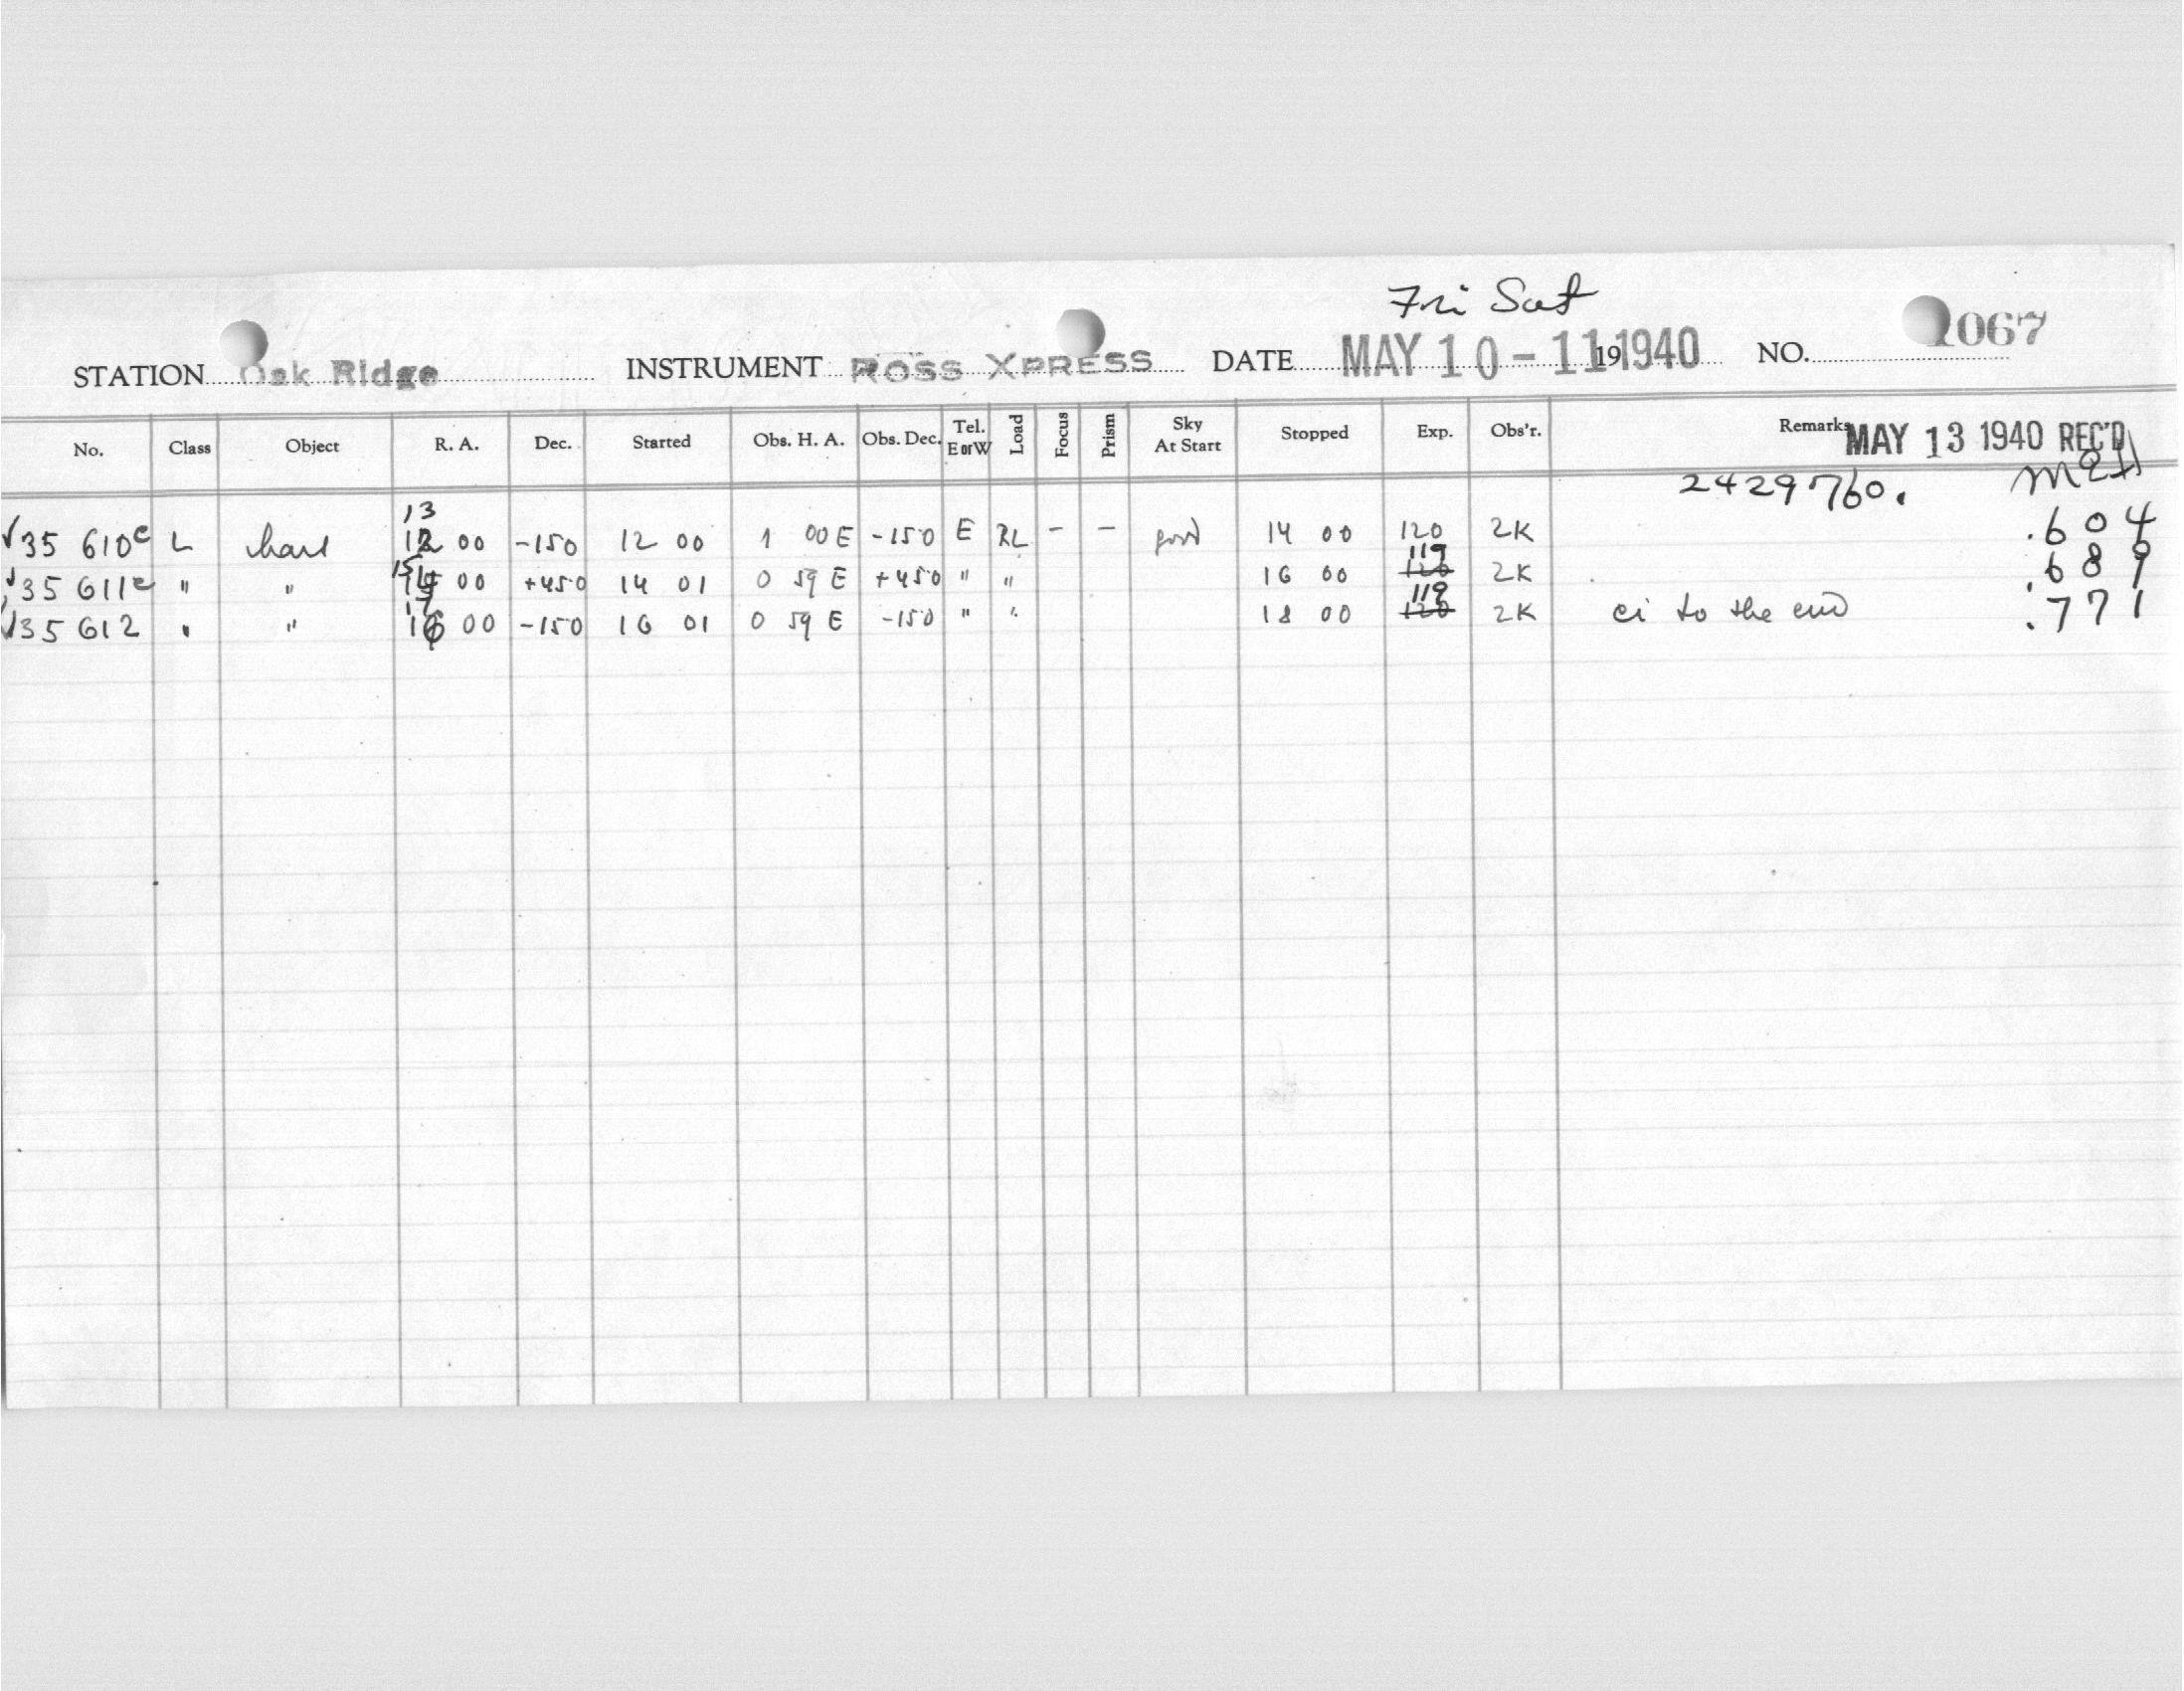 Fri Sat
STATION Oak Ridge INSTRUMENT ROSS XPRESS DATE MAY 10-11 19 1940 NO. 1067
No. Class Object R. A. Dec. Started Obs. H. A. Obs. Dec. Tel. E or W Load Focus Prism Sky At Start Stopped Exp. Obs'r. Remarks MAY 13 1940 REC'D
2429760.
13
√35 610c L chart 12 00 -150 12 00 1 00 E -150 E RL - - good 14 00 120 2K .604
15 119
√35 611c " " 14 00 +450 14 01 0 59 E +450 " " 16 00 120 2K .689
17 119
√35 612 " " 16 00 -150 16 01 0 59 E -150 " " 18 00 120 2K ci to the end .771